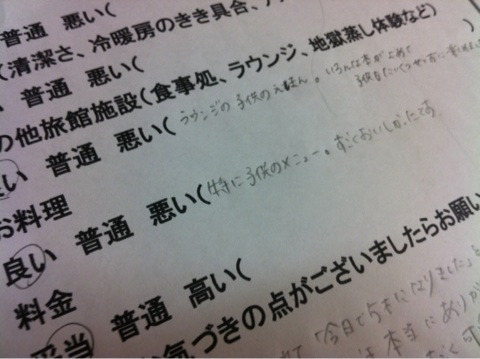 普通 悪い(
(清潔さ、冷暖房のきき具合、
普通 悪い(
の他旅館施設(食事処、ラウンジ、地獄蒸し体験など)
い 普通 悪い(ラウンジの子供のえほん。いろんな本がよめて
子供も
お料理
良い 普通 悪い(特に子供のメニュー。すごくおいしかったです
料金
妥当 普通 高い(
気づきの点がございましたらお願い
「今日で5才になりました」と
は本当にありが